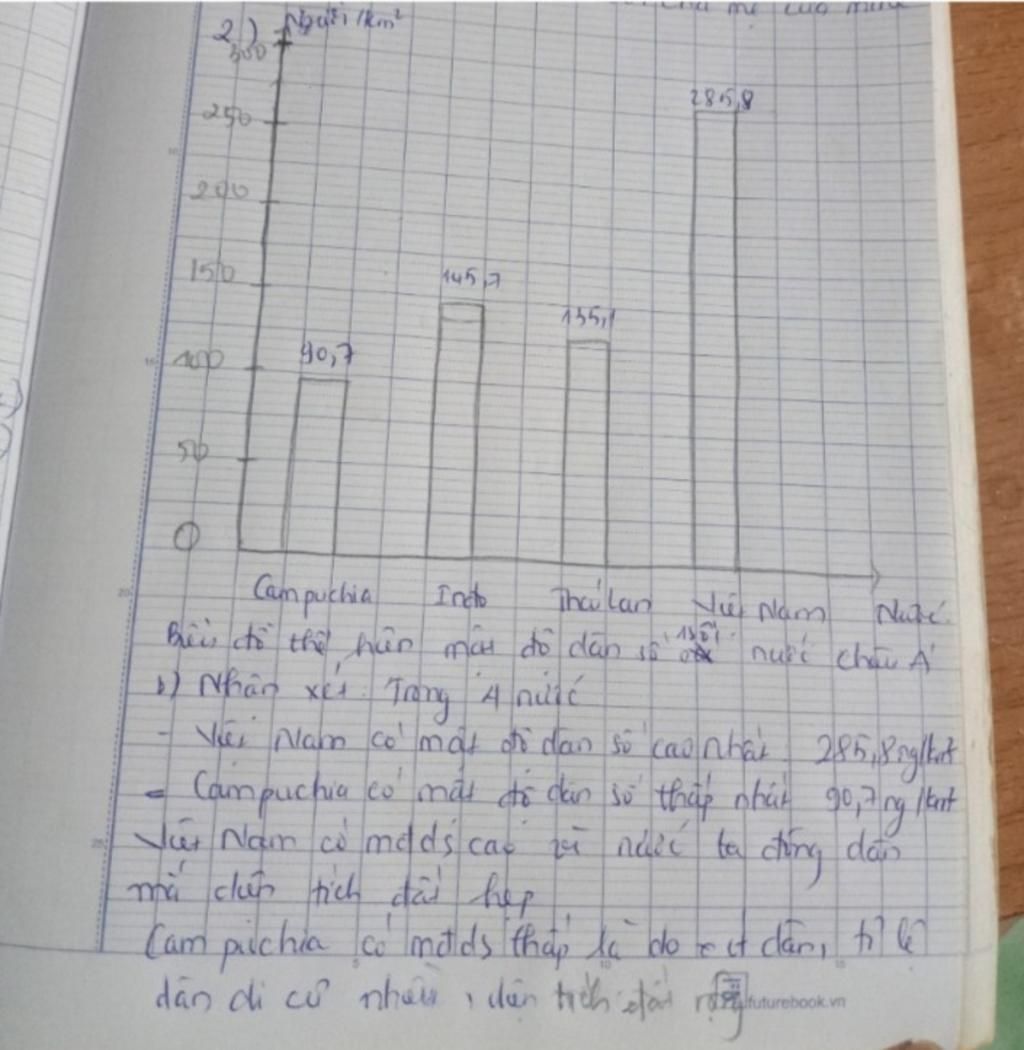 2)
Người/km²
300
250
200
150
100
50
0
90,7
145,7
135,1
285,8
Campuchia Indo Thái Lan Việt Nam Nước
Biểu đồ thể hiện mật độ dân số nước châu Á
b) Nhận xét: Trong 4 nước
- Việt Nam có mật độ dân số cao nhất 285,8ng/km²
- Campuchia có mật độ dân số thấp nhất 90,7ng/km²
Việt Nam có mdds cao vì nước ta đông dân
mà diện tích đất hẹp
Campuchia có mdds thấp là do ít dân, tỉ lệ
dân di cư nhiều, diện tích đất rộng
futurebook.vn